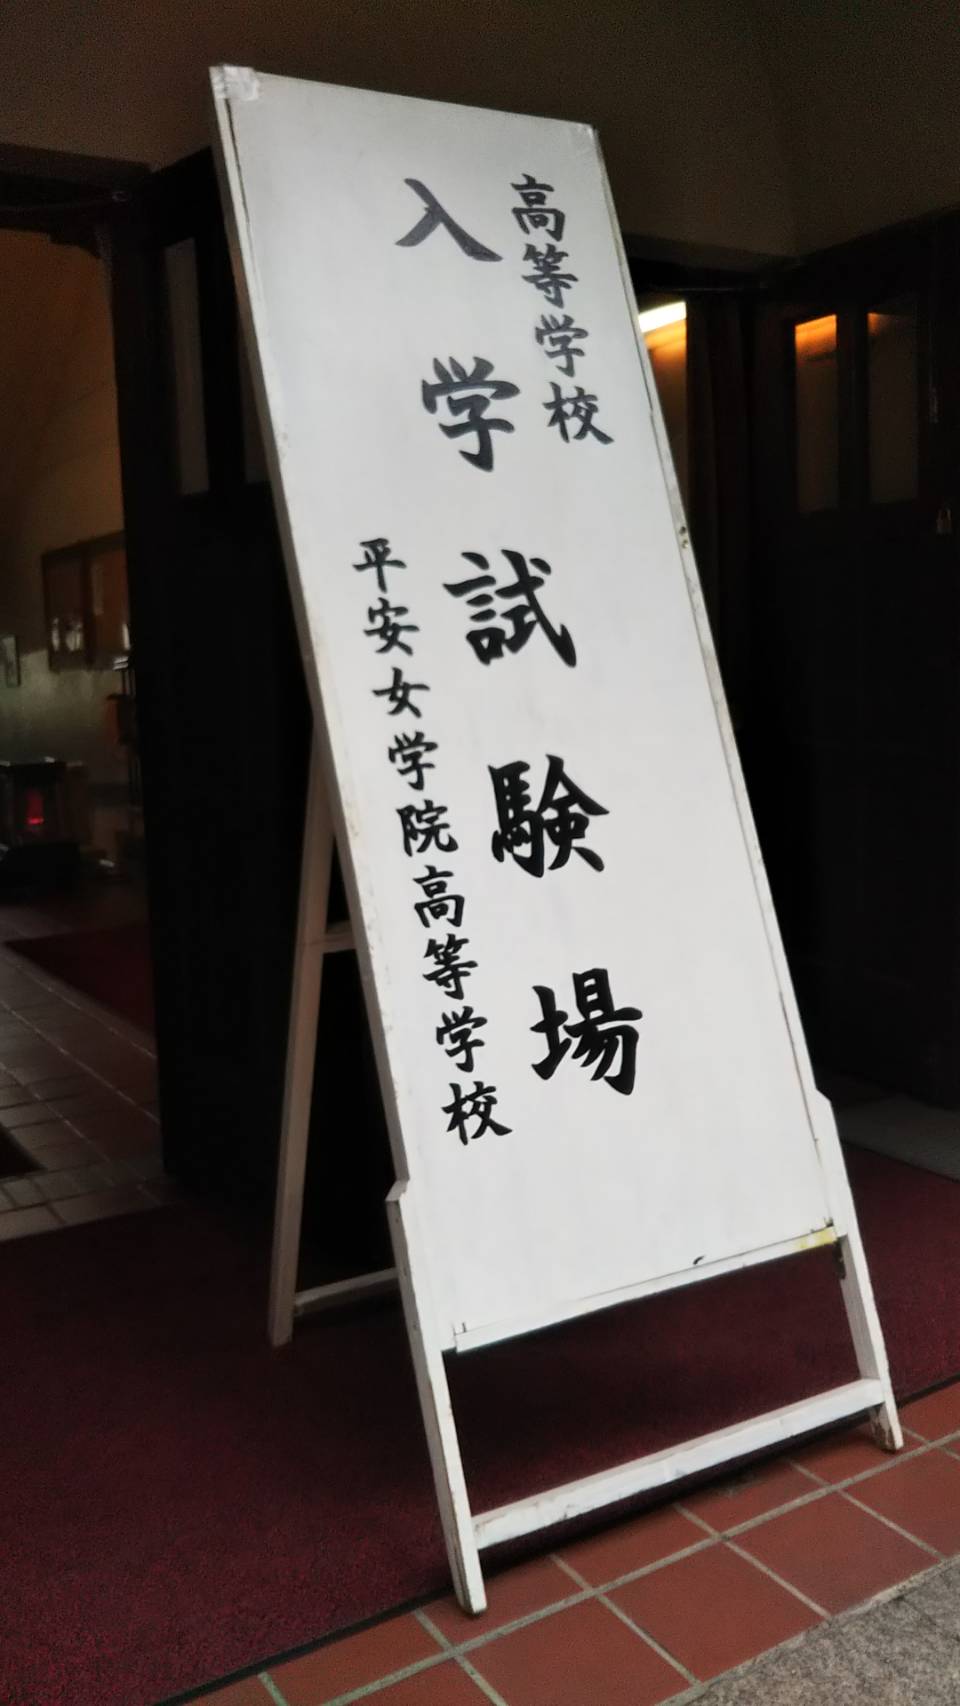 高等学校
入学試験場
平安女学院高等学校